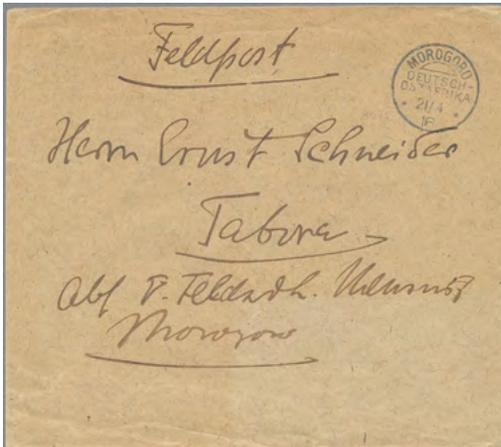 Feldpost
MOROGORO
DEUTSCH-
OSTAFRIKA
21/4
16
Herrn Ernst Schneider
Tabora
Abs
Morogoro